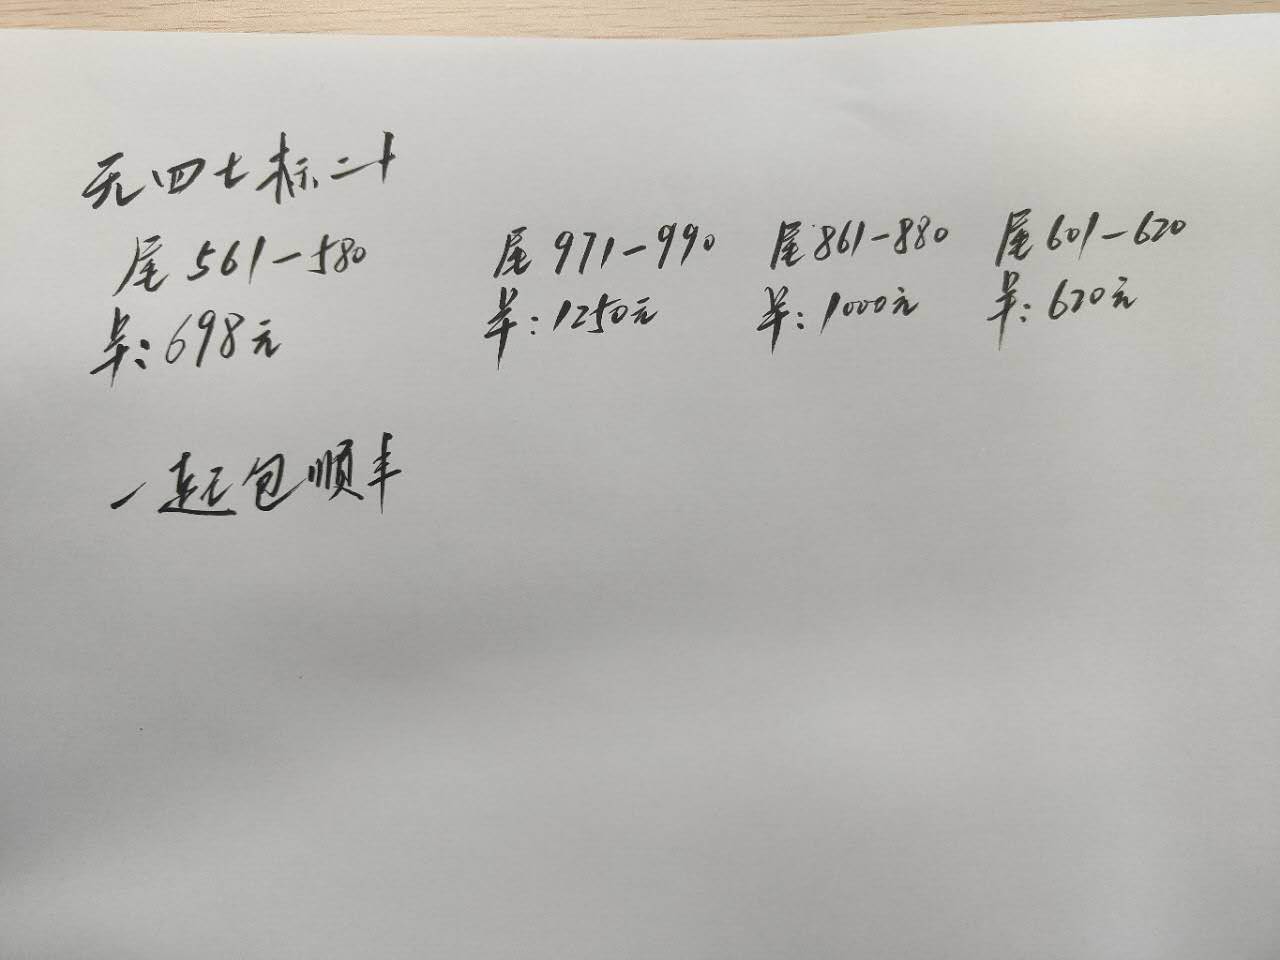 无四七标二十
尾561-580 尾971-990 尾861-880 尾601-620
单:698元 单:1250元 单:1000元 单:620元
一起包顺丰